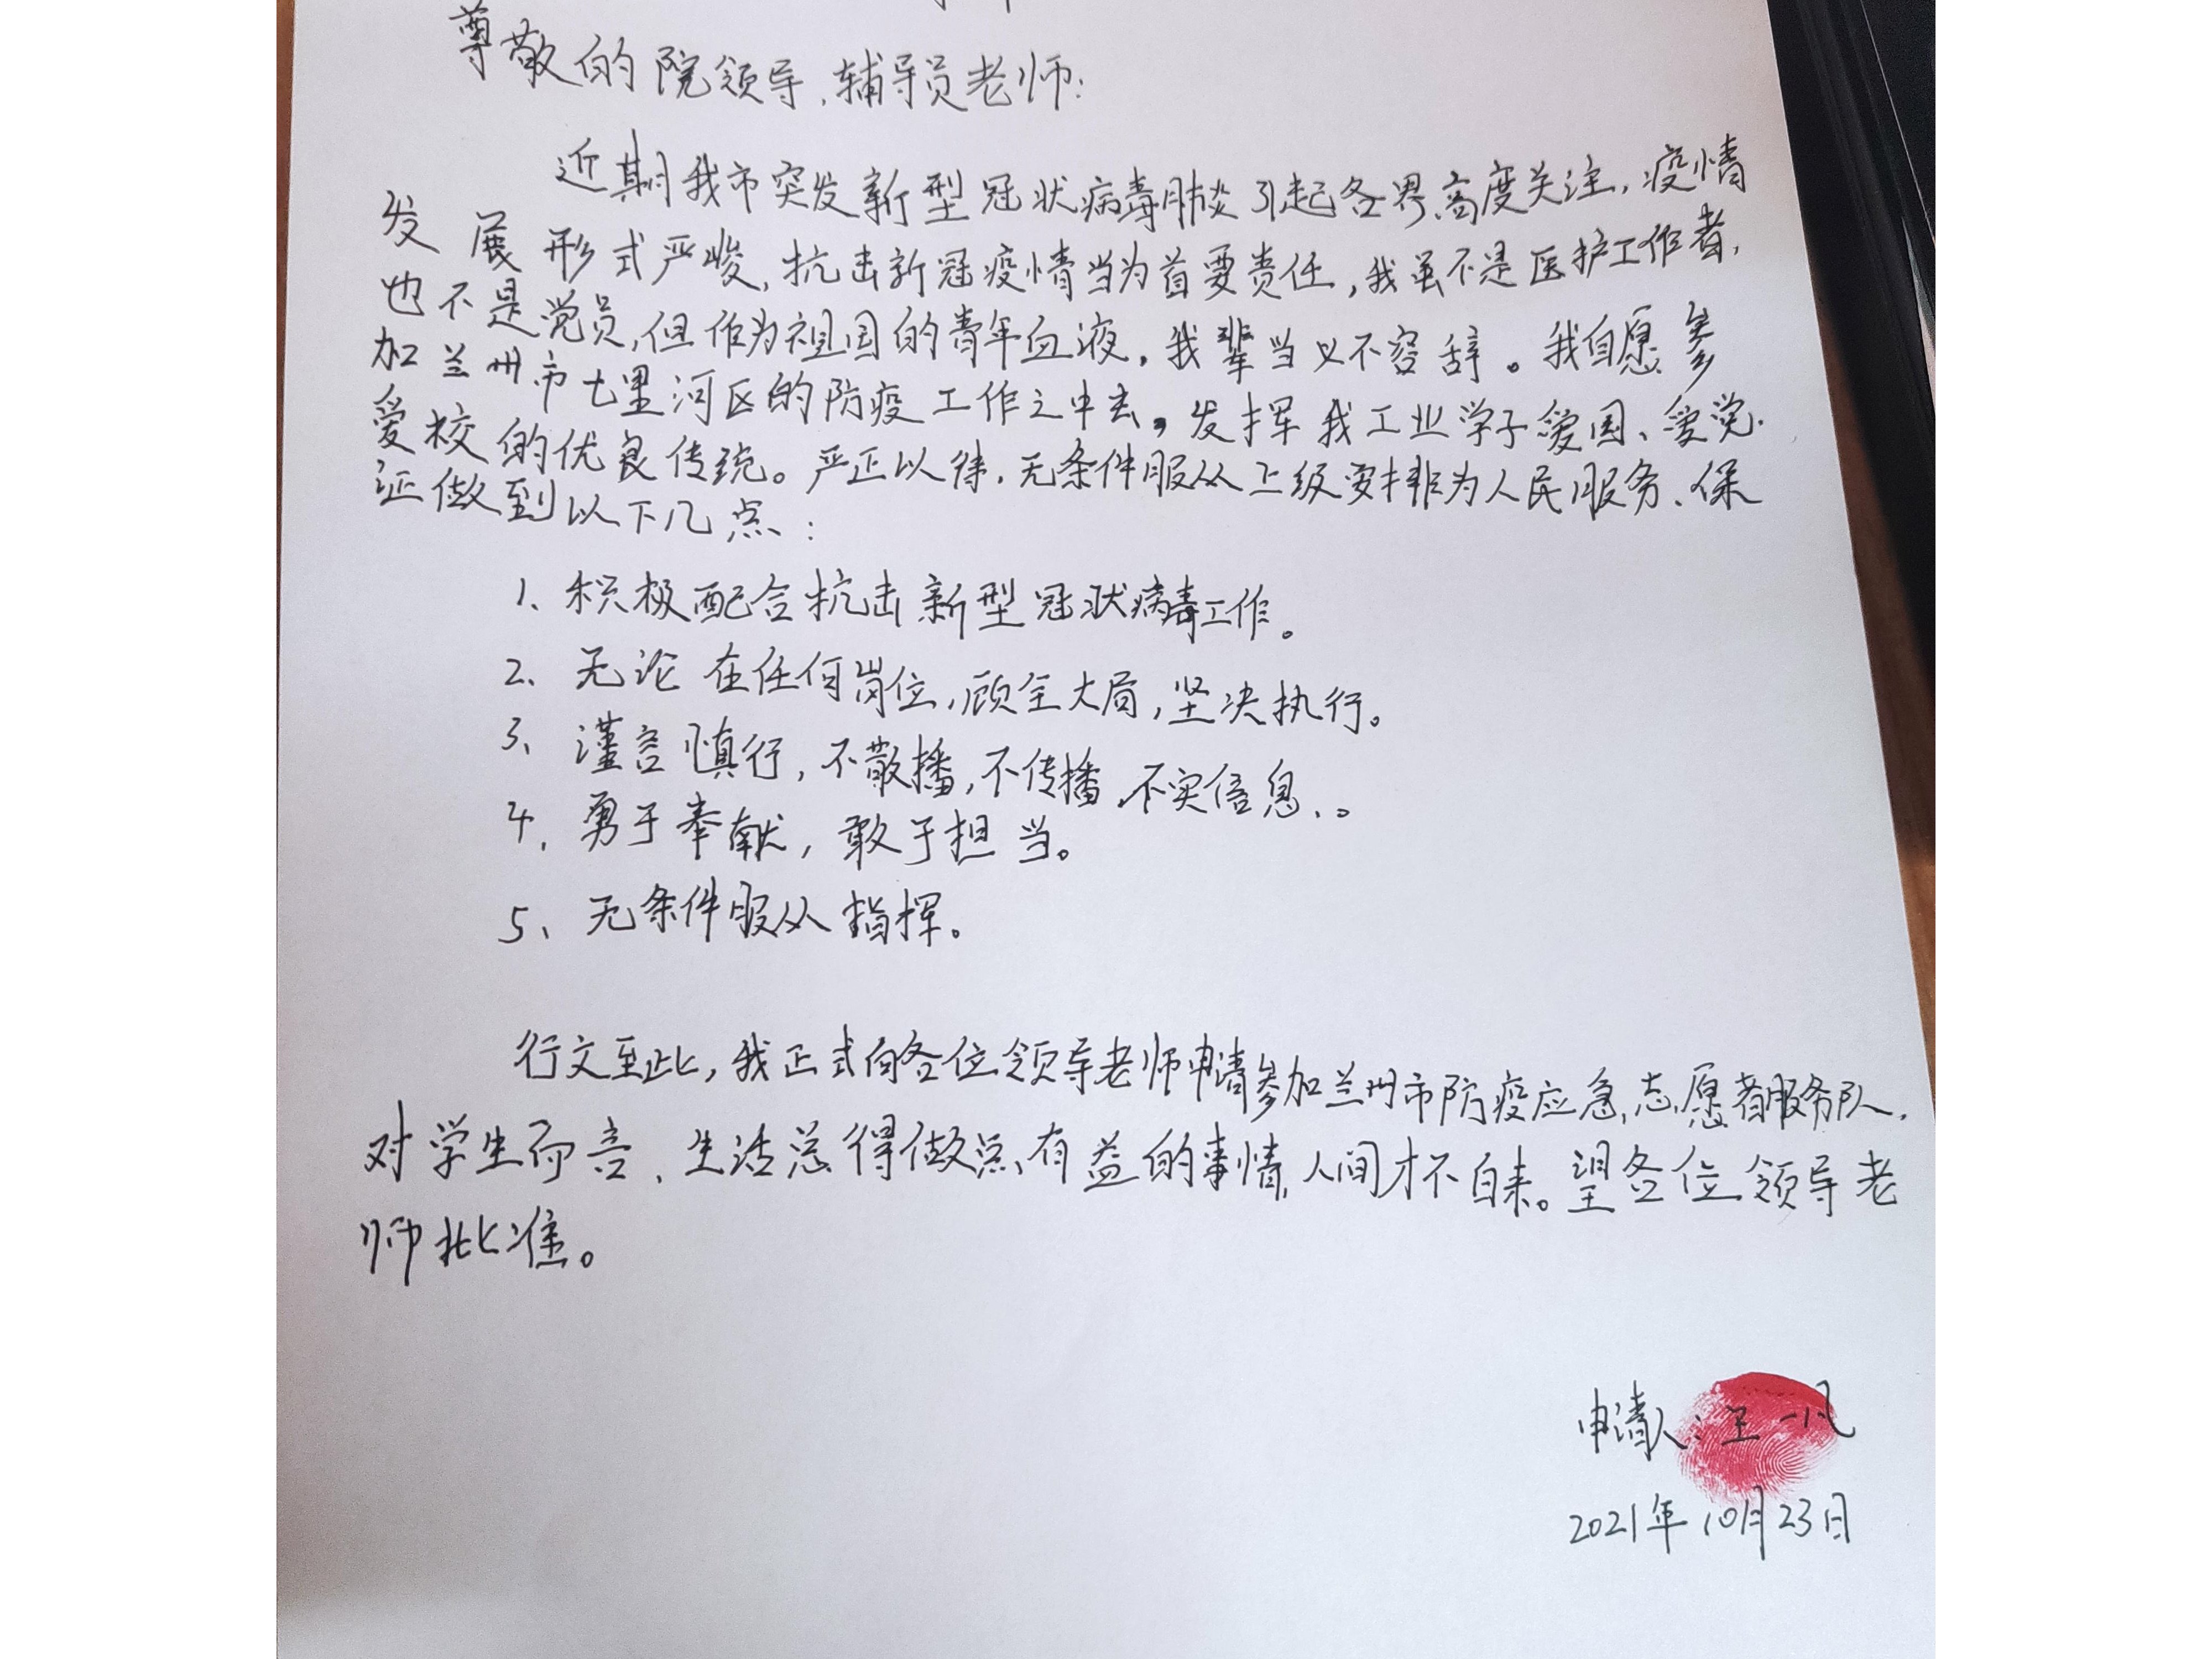 尊敬的院领导、辅导员老师:
近期我市突发新型冠状病毒肺炎引起各界高度关注,疫情
发展形式严峻,抗击新冠疫情当为首要责任,我虽不是医护工作者,
也不是党员,但作为祖国的青年血液,我辈当义不容辞。我自愿参
加兰州市七里河区的防疫工作之中去,发挥我工业学子爱国、爱党、
爱校的优良传统。严正以待,无条件服从上级安排为人民服务、保
证做到以下几点:
1、积极配合抗击新型冠状病毒工作。
2、无论在任何岗位,顾全大局,坚决执行。
3、谨言慎行,不散播,不传播,不实信息、。
4、勇于奉献,敢于担当。
5、无条件服从指挥。
行文至此,我正式向各位领导老师申请参加兰州市防疫应急志愿者服务队,
对学生而言、生活总得做点有益的事情,人间才不白来。望各位领导老
师批准。
申请人:王一凡
2021年10月23日